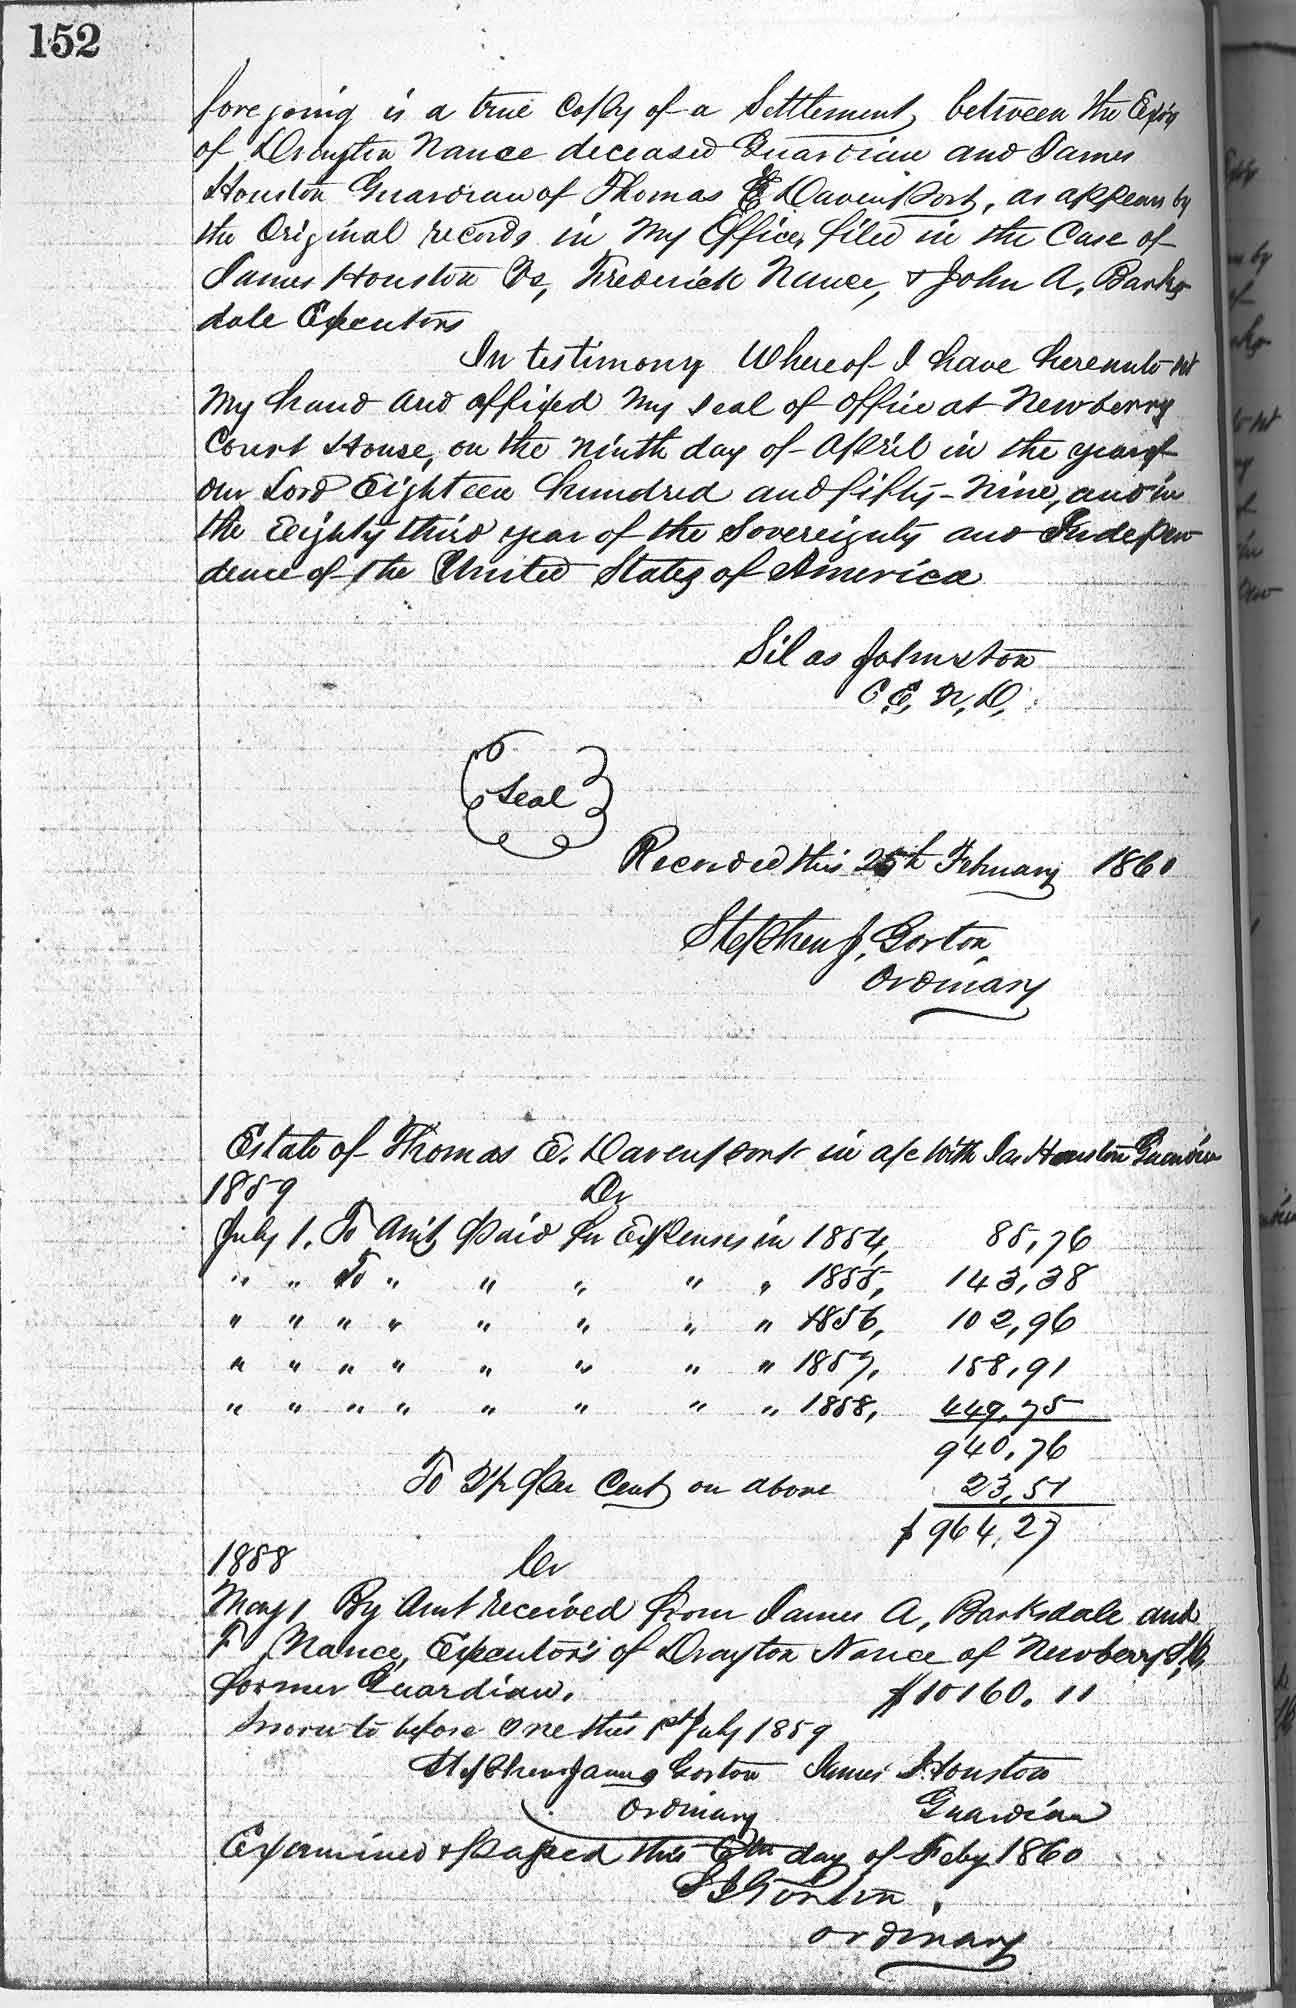 152
foregoing is a true Copy of a Settlement, between the Exors
of Drayton Nance deceased Guardian and James
Houston Guardian of Thomas E Davenport, as appears by
the Original records in My Office, filed in the Case of
James Houston Vs, Frederick Nance, & John A, Barks-
dale Executors
In testimony Whereof I have hereunto set
My hand and affixed My seal of office at Newberry
Court House, on the ninth day of April in the year of
our Lord Eighteen hundred and fifty-Nine, and in
the Eighty third year of the Sovereignty and Indepen
dence of the United States of America
Silas Johnston
C, E, N, D,
Seal
Recorded this 25th February 1860
Stephen J, Gorton,
Ordinary
Estate of Thomas E. Davenport in a/c With Jas Houston Guardian
1859 Dr
July 1. To Amt Paid for Expenses in 1854, 85,76
" " To " " " " " 1855, 143,38
" " " " " " " " 1856, 102,96
" " " " " " " " 1857, 158,91
" " " " " " " " 1858, 449,75
940,76
To 2½ Per Cent on above 23,51
$964,27
1858 Cr
May 1 By Amt received from James A, Barksdale and
F Nance, Executor's of Drayton Nance of Newberry S,C,
former Guardian. $10160.11
Sworn to before me this 1st July 1859
Stephen James Gorton James Houston
Ordinary Guardian
Examined & Passed this 6th day of Feby 1860
S J Gorton
Ordinary